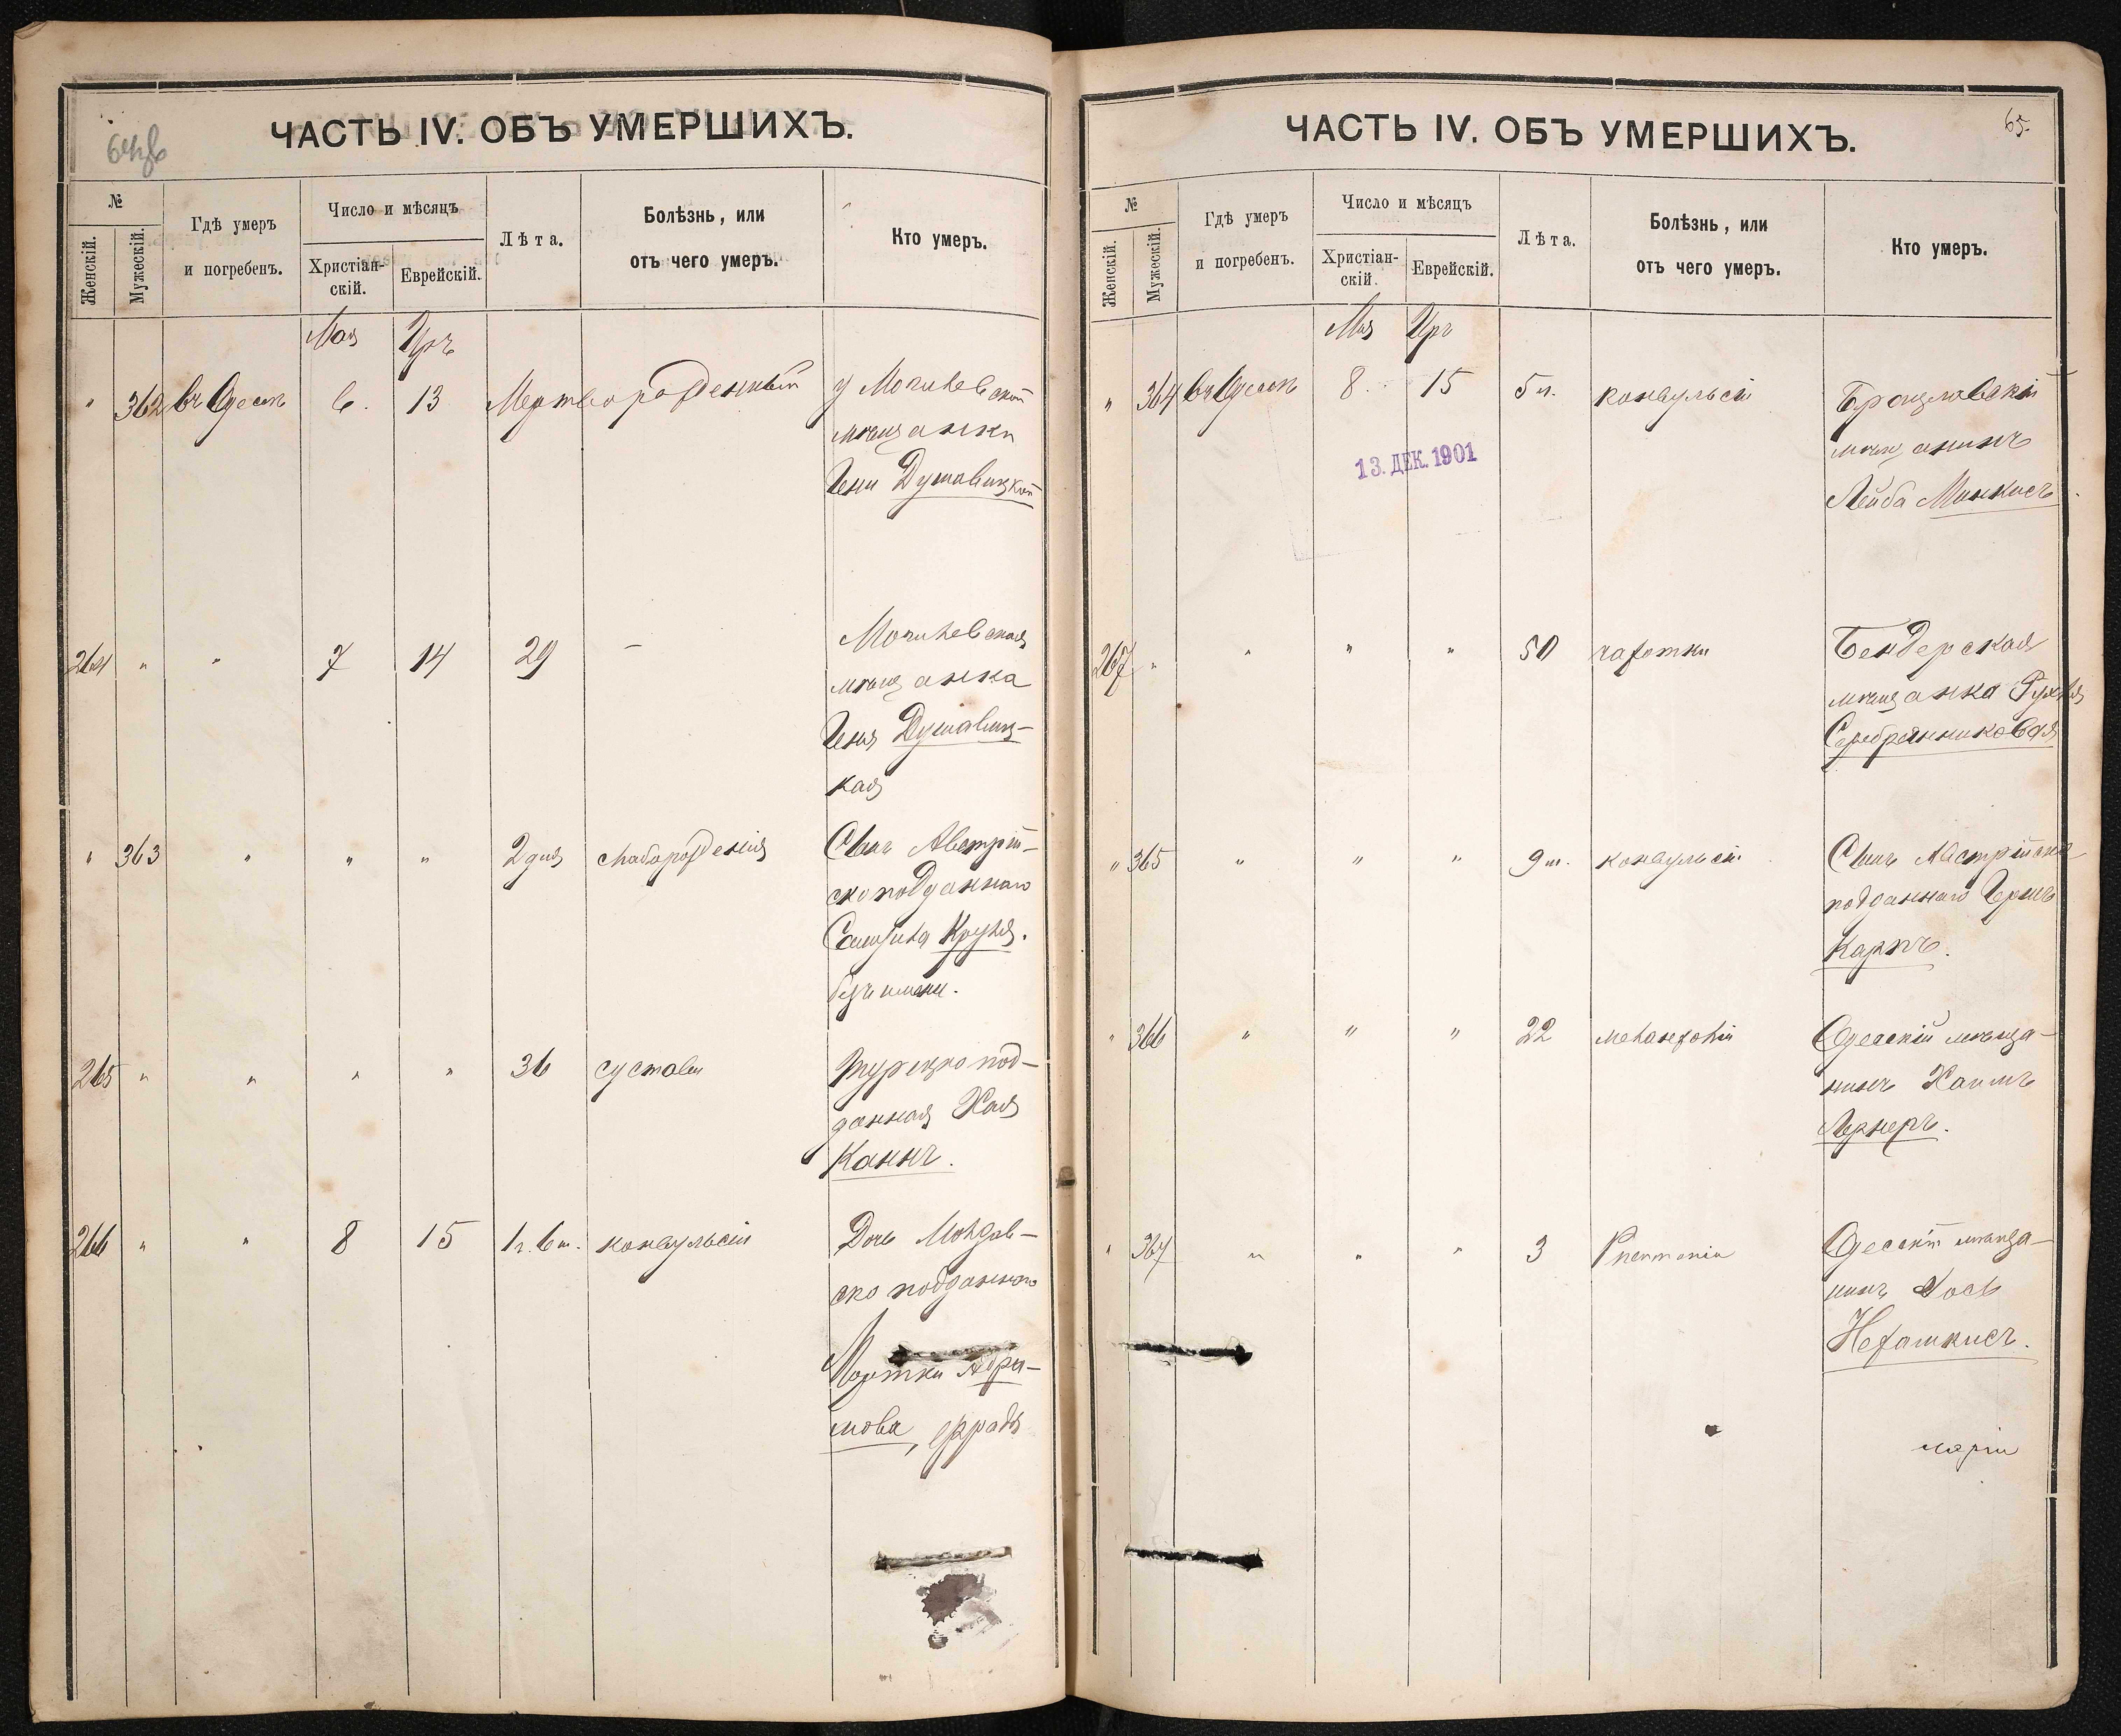 ЧАСТЬ IV. ОБЪ УМЕРШИХЪ.
№
Женскій.
Мужескій.
Гдѣ умеръ
и погребенъ.
Число и мѣсяцъ
Христіан-
скій.
Еврейскій.
Лѣта.
Болѣзнь, или
отъ чего умеръ.
Кто умеръ.
Мая Іръ
" 362 въ Одессѣ 6. 13 Мертворожденный у Могилевской
мѣщанки
Гени Душавицкой
264 " " 7 14 29 — Могилевская
мѣщанка
Геня Душавиц-
кая
" 363 " " " 2 дня слаборожденія Сынъ Австрій-
ско подданнаго
Самуила
безъ имени.
265 " " " " 36 суставы Турецко под-
данная Хая
Каннъ.
266 " " 8 15 1 г. 6 м. конвульсіи Дочь Молдав-
ско подданнаго
Мортки Абра-
мова,
ЧАСТЬ IV. ОБЪ УМЕРШИХЪ.
65.
№
Женскій.
Мужескій.
Гдѣ умеръ
и погребенъ.
Число и мѣсяцъ
Христіан-
скій.
Еврейскій.
Лѣта.
Болѣзнь, или
отъ чего умеръ.
Кто умеръ.
Мая Іръ
" 364 въ Одессѣ 8. 15 5 л. конвульсіи Брацлавскій
мѣщанинъ
Лейба Минкисъ
13. ДЕК. 1901
267 " " " " 50 чахотки Бендерская
мѣщанка Рухля
Серебрянниковая
" 365 " " " 9 м. конвульсіи Сынъ Австрійско
подданнаго Гершъ
Карпъ.
" 366 " " " 22 меланхоліи Одесскій мѣща-
нинъ Хаимъ
Лернеръ.
" 367 " " " 3 Pneumonia Одесскій мѣща-
нинъ Іось
Нехамкисъ.